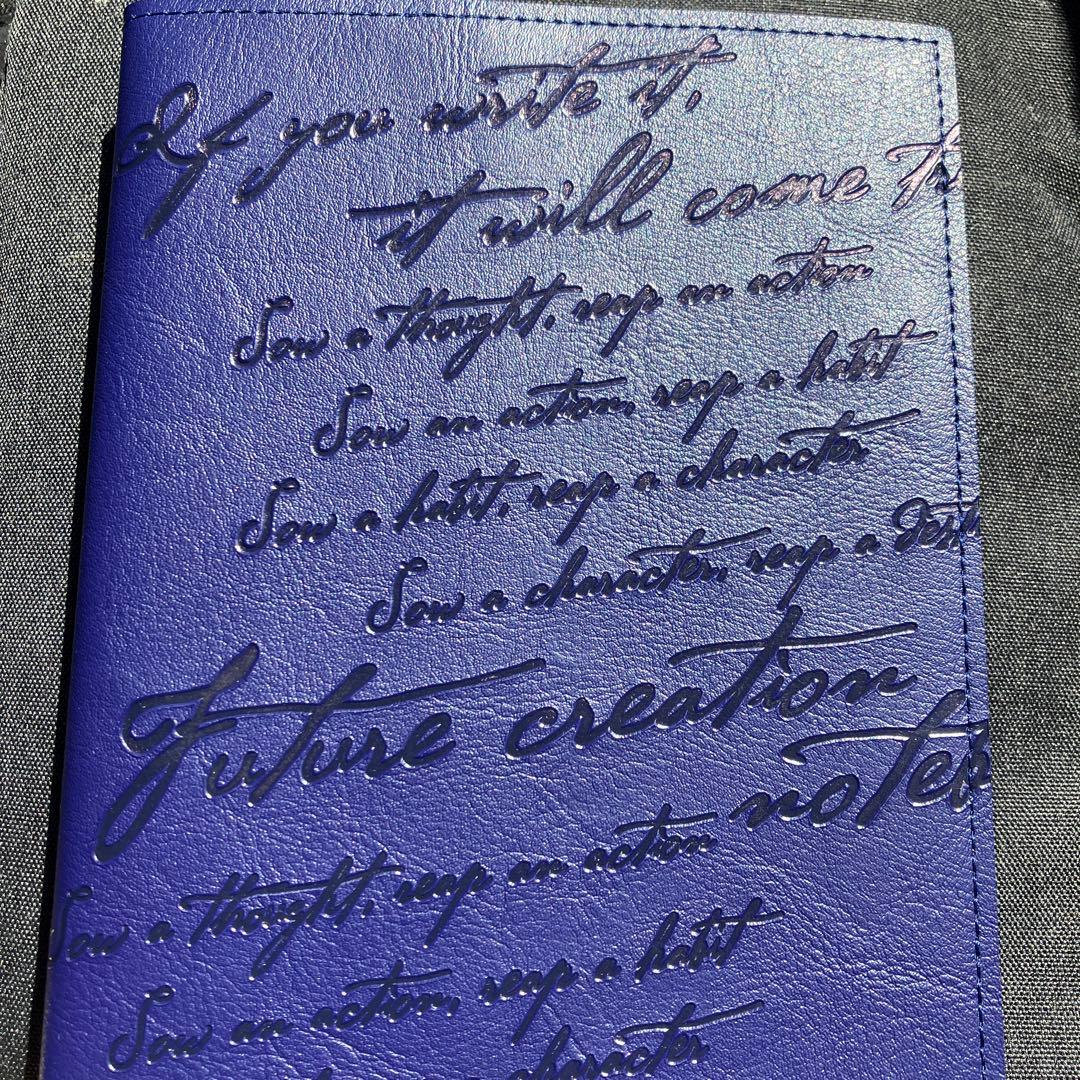 If you write it,
it will come
Sow a thought, reap an action
Sow an action, reap a habit
Sow a habit, reap a character
Sow a character, reap a
Future creation
Sow a thought, reap an action
Sow an action, reap a habit
character